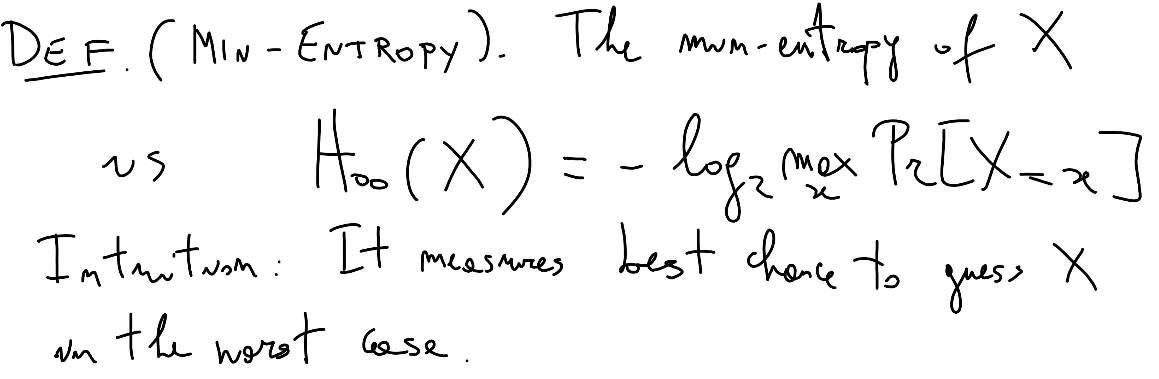 DEF. (MIN-ENTROPY). The min-entropy of X
is H∞(X) = - log₂ max_x Pr[X = x]
Intuition: It measures best chance to guess X
in the worst case.